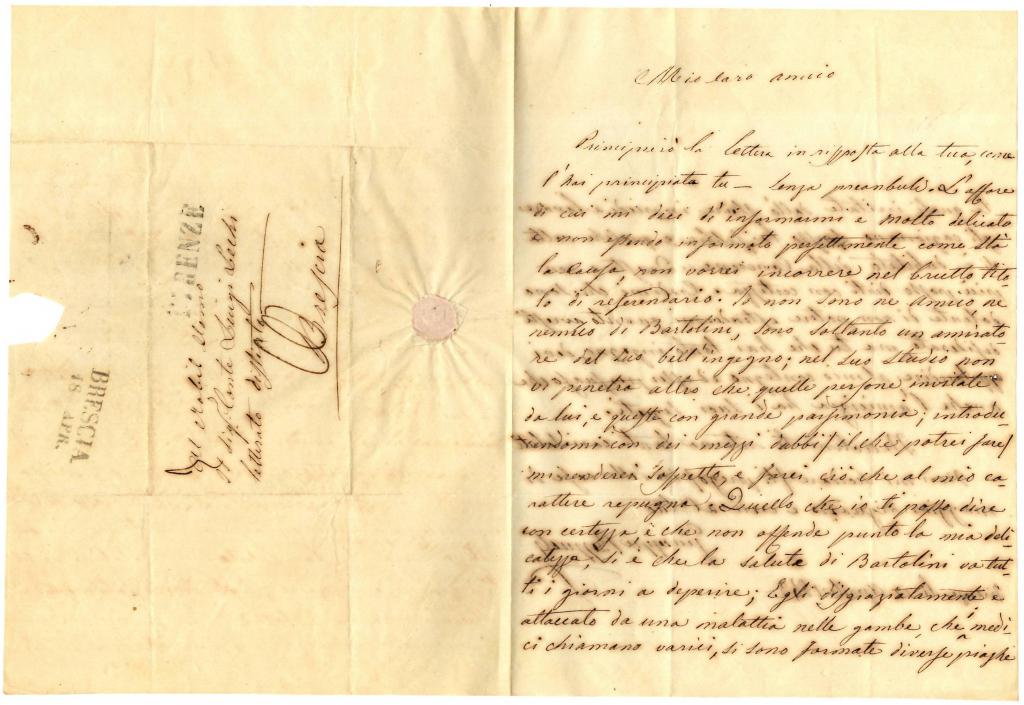 FIRENZE
BRESCIA
18 APR.
Al Nobil Uomo
Il Sig. Conte Luigi Lechi
letterato distinto
Brescia
Mio caro amico
Principierò la lettera in risposta alla tua, come
l'hai principiata tu — senza preamboli. L'affare
di cui mi dici d'informarmi è molto delicato
e non essendo informato perfettamente come stà
la causa, non vorrei incorrere nel brutto tito
lo di referendario. Io non sono ne amico ne
nemico di Bartolini, sono soltanto un amirato
re del suo bell'ingegno; nel suo studio non
vi penetra altro che quelle persone invitate
da lui, e queste con grande parsimonia; introdu
cendomi con dei mezzi dubbi / il che potrei fare /
mi renderei sospetto, e farei ciò che al mio ca
rattere repugna. Quello che io ti posso dire
con certezza, e che non offende punto la mia deli
catezza, si è che la salute di Bartolini va tut
ti i giorni a deperire; Egli disgraziatamente è
attaccato da una malattia nelle gambe, che i medi
ci chiamano varici, si sono formate diverse piaghe